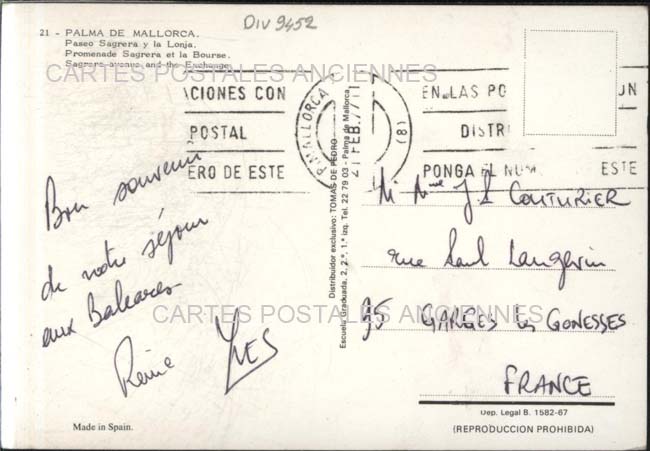 DIV 9452
21 - PALMA DE MALLORCA.
Paseo Sagrera y la Lonja.
Promenade Sagrera et la Bourse.
Sagrera avenue and the Exchange.
CARTES POSTALES ANCIENNES
ACIONES CON
POSTAL
ERO DE ESTE
P. MALLORCA
21 FEB. 77
(8)
EN LAS PO
UN
DISTR
PONGA EL NUM
ESTE
Bon souvenir
de notre séjour
aux Baleares
Reine YVES
Distribuidor exclusivo: TOMAS DE PEDRO
Escuela Graduada, 2, 2.º, 1.ª izq. Tel. 22 79 03 - Palma de Mallorca
M. Mme J. L COUTURIER
rue Paul Langevin
CARTES POSTALES ANCIENNES
95 GARGES les GONESSES
FRANCE
Dep. Legal B. 1582-67
(REPRODUCCION PROHIBIDA)
Made in Spain.